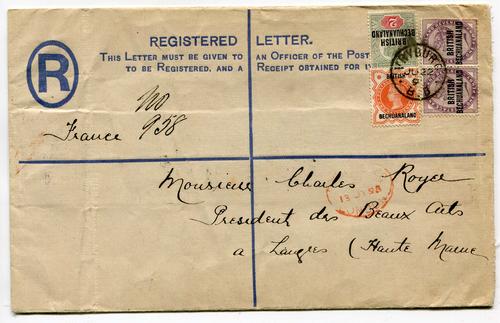 REGISTERED LETTER.
THIS LETTER MUST BE GIVEN TO AN OFFICER OF THE POST
TO BE REGISTERED, AND A RECEIPT OBTAINED FOR I
R
No
958
France
Monsieur Charles Royer
President des Beaux Arts
a Langres (Haute Marne
BRITISH
BECHUANALAND
2
BRITISH
BECHUANALAND
BRITISH
BECHUANALAND
BRITISH
BECHUANALAND
VRYBURG
JU 22
B.B